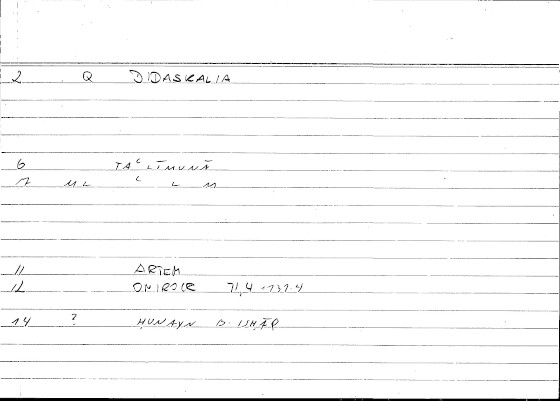 2 Q DIDASKALIA
6 TAʿLĪMUNĀ
7 ML ʿ L M
11 ARTEM
12 ONIROCR 71,4-131.4
14 ? ḤUNAYN B. ISḤĀQ